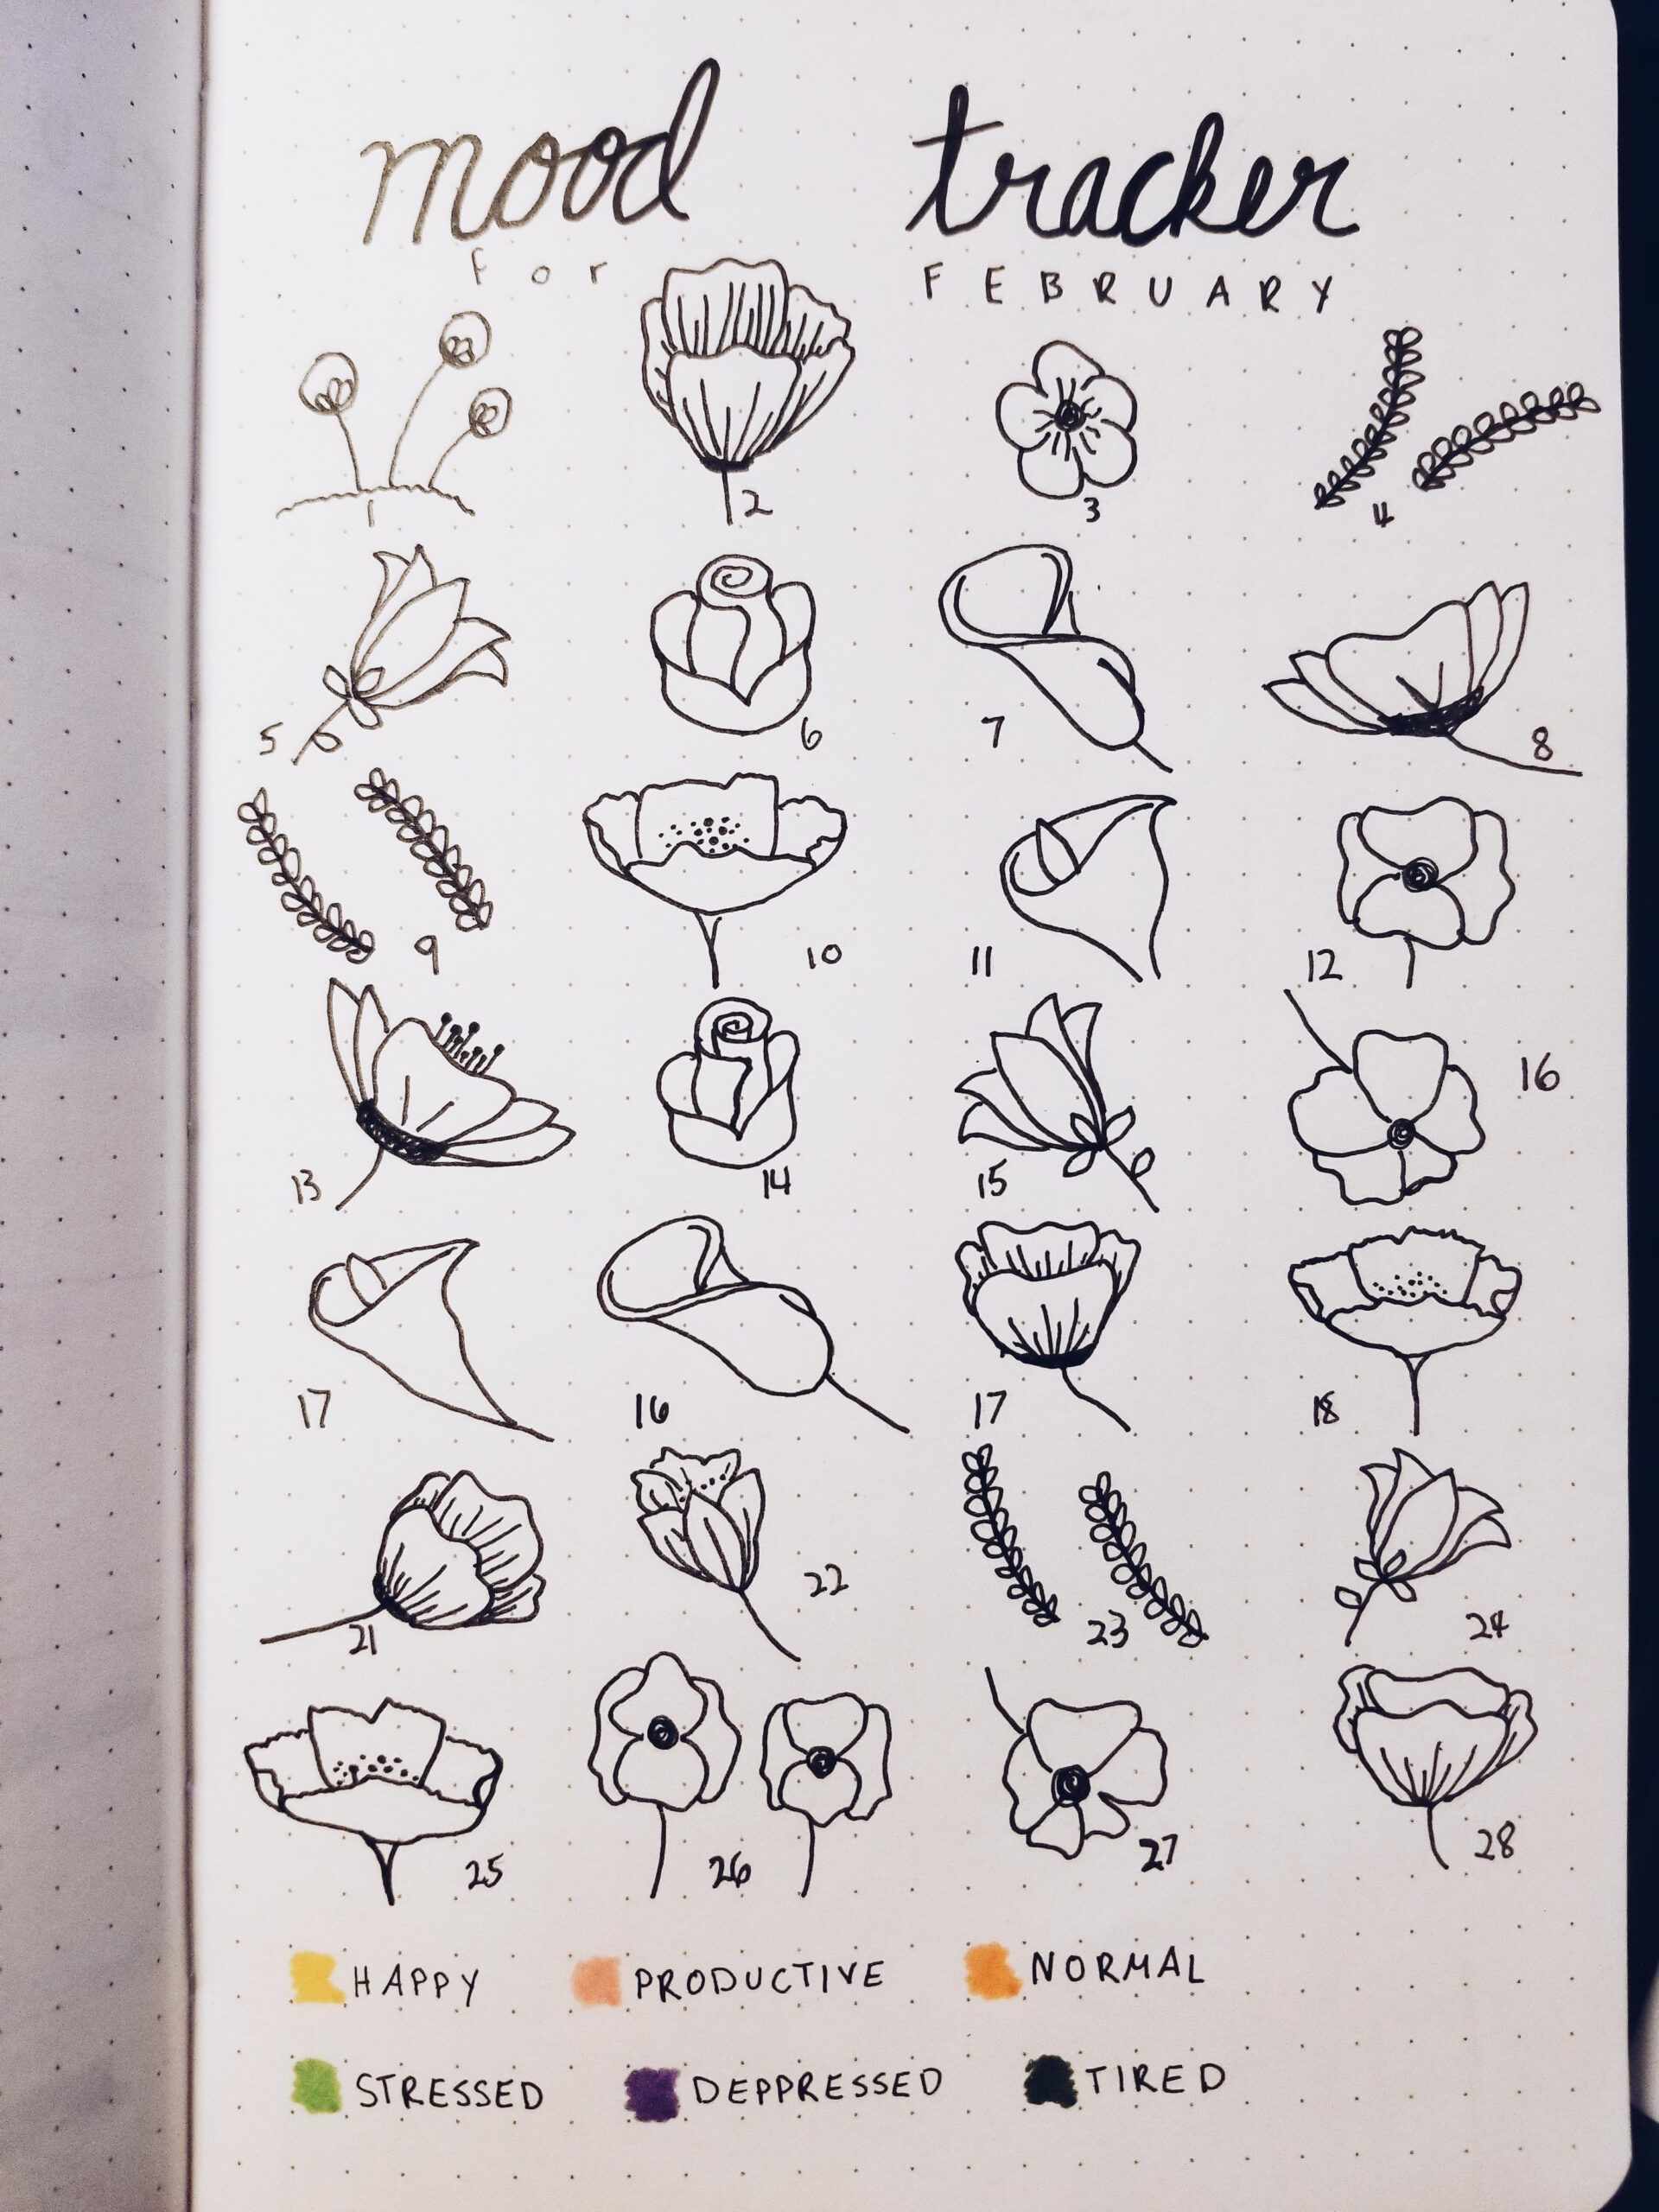 mood tracker
for FEBRUARY
1 2 3 4
5 6 7 8
9 10 11 12
13 14 15 16
17 16 17 18
21 22 23 24
25 26 27 28
HAPPY PRODUCTIVE NORMAL
STRESSED DEPPRESSED TIRED